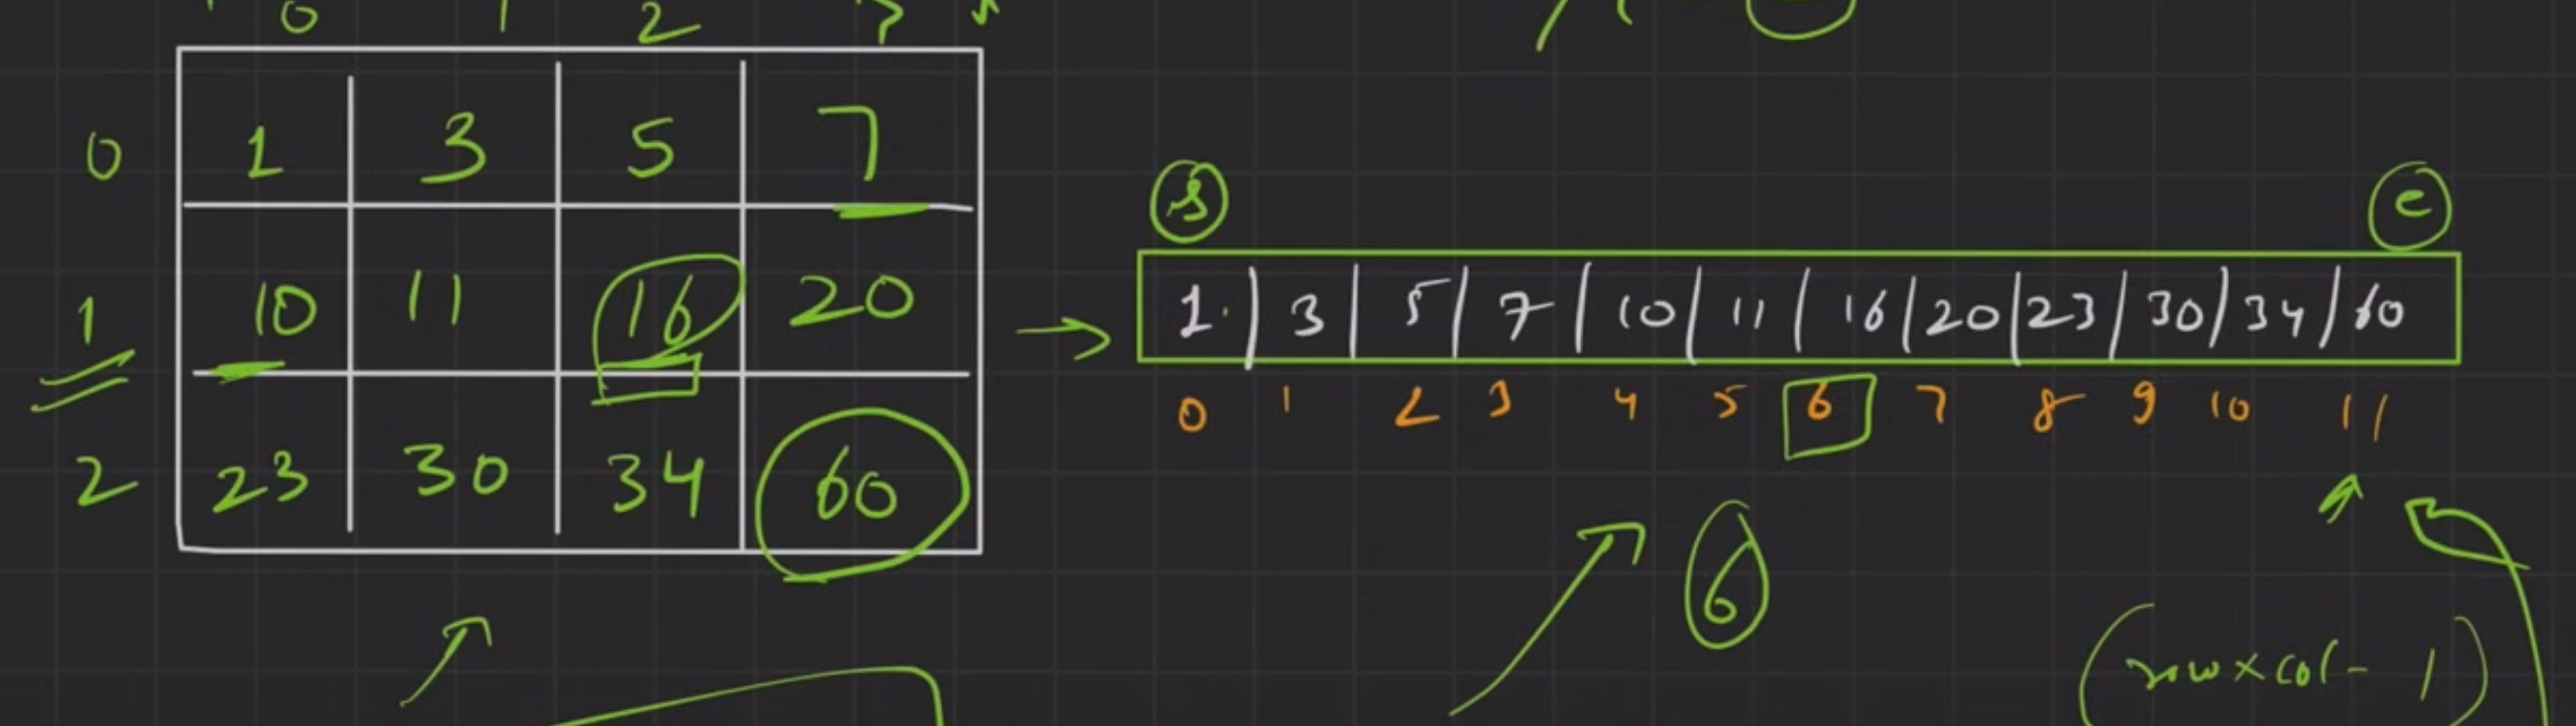 0 1 2
0 1 3 5 7
1 10 11 16 20
2 23 30 34 60
s e
1 3 5 7 10 11 16 20 23 30 34 60
0 1 2 3 4 5 6 7 8 9 10 11
6
(row x col - 1)